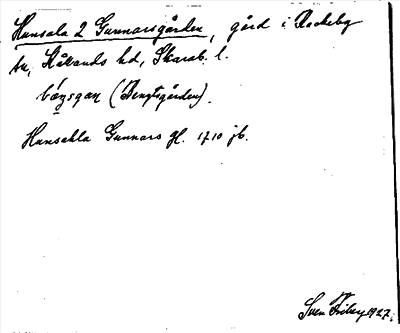 Hunsala 2 Gunnarsgården, gård i Rackeby
sn, Kållands hd, Skarab. l.
bǻŋsgaɲ (Bengtsgården).
Hunsahla Gunnars gl. 1710 jb.
Sven Friberg 1927.